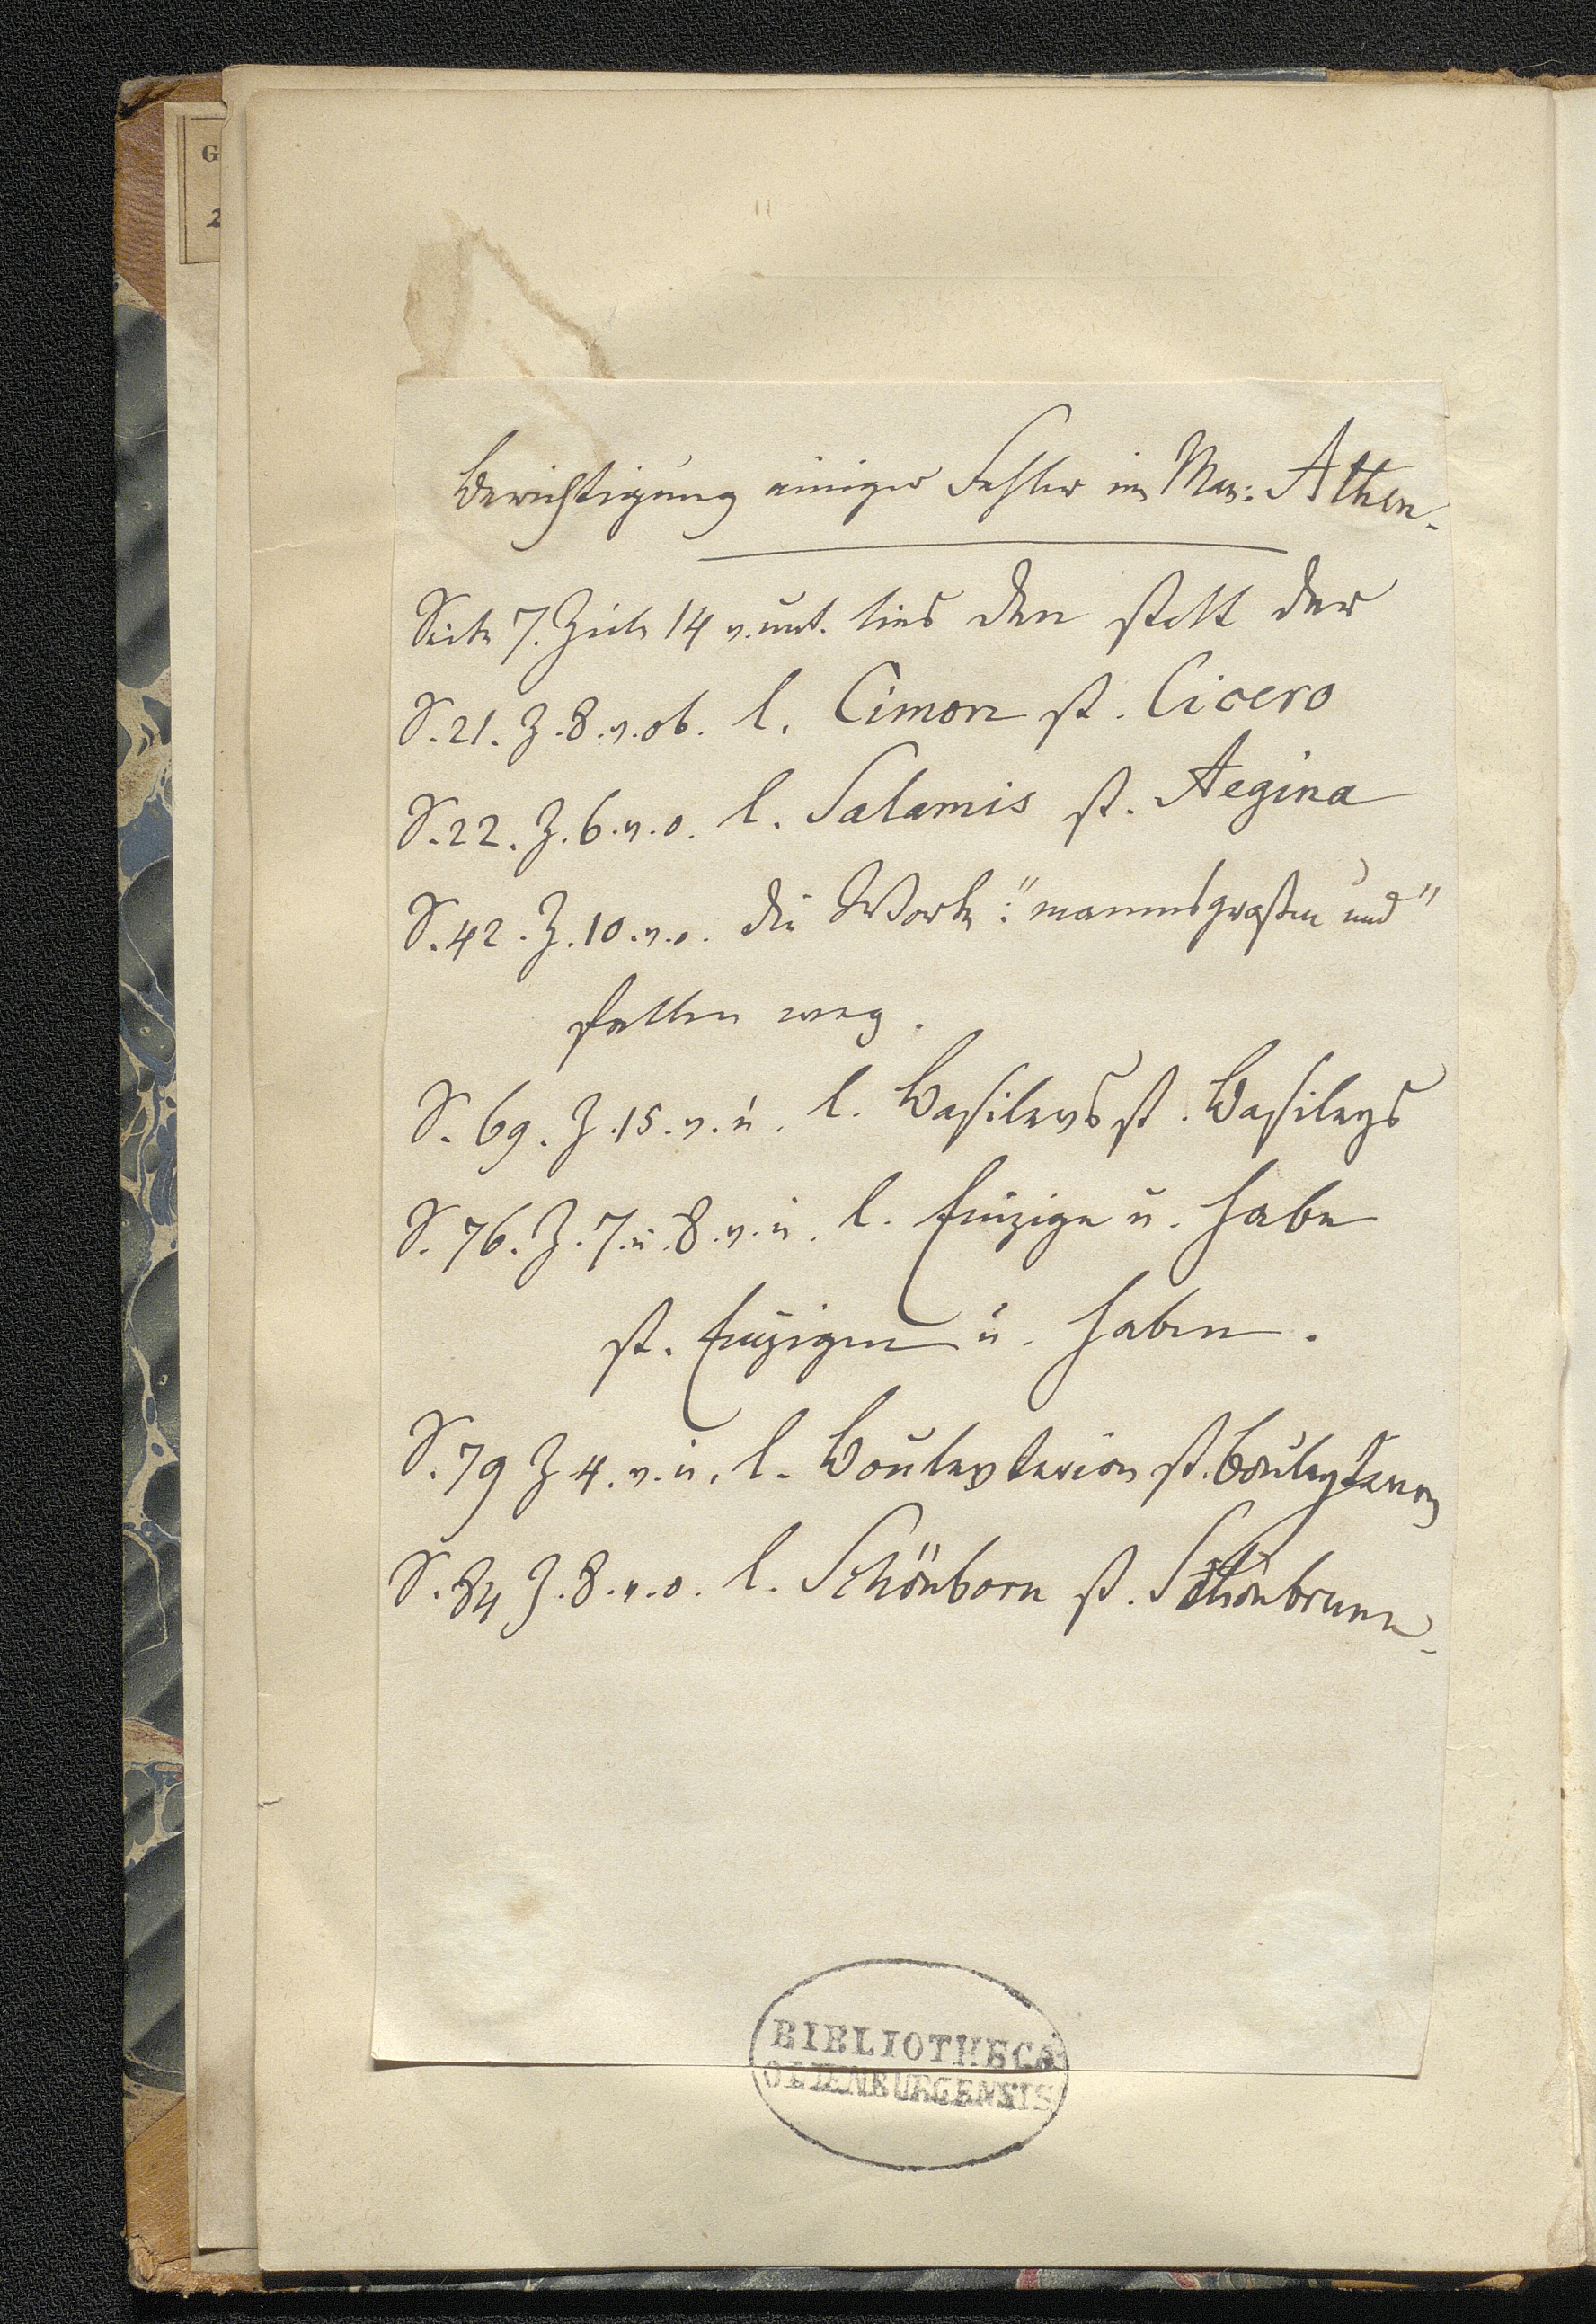 G
2
Berichtigung einiger Fehler im Man: Athen.
Seite 7. Zeile 14 v. unt. lies den statt der
S. 21. Z. 8. v. ob. l. Cimon st. Cicero
S. 22. Z. 6. v. o. l. Salamis st. Aegina
S. 42. Z. 10. v. o. die Worte: "mannsgroßen und"
fallen weg.
S. 69. Z. 15. v. u. l. Basilevs st. Basileys
S. 76. Z. 7. u. 8. v. u. l. Einzige u. habe
st. Einzigen u. haben.
S. 79 Z 4. v. u. l. Boulevterion st.
S. 84 Z. 8. v. o. l. Schönborn st. Schönbrunn.
BIBLIOTHECA
OLDENBURGENSIS